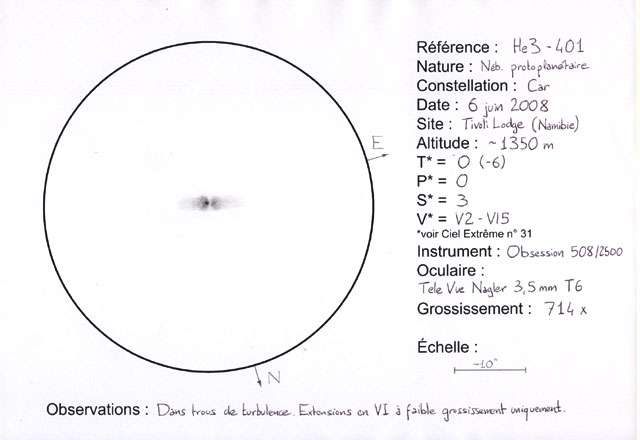 Référence : He3-401
Nature : Néb. protoplanétaire
Constellation : Car
Date : 6 juin 2008
Site : Tivoli Lodge (Namibie)
Altitude : ~1350 m
T* = 0 (-6)
P* = 0
S* = 3
V* = V2-VI5
*voir Ciel Extrême n° 31
Instrument : Obsession 508/2500
Oculaire :
Tele Vue Nagler 3,5mm T6
Grossissement : 714 x
Échelle :
~10"
E
N
Observations : Dans trous de turbulence. Extensions en VI à faible grossissement uniquement.